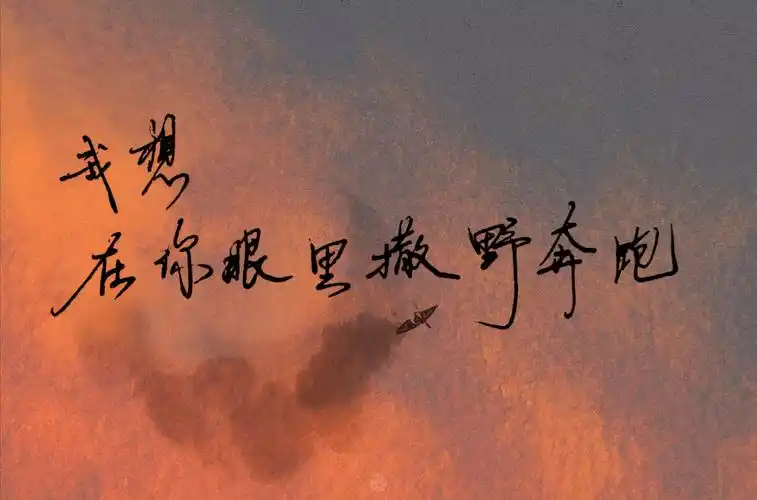 我想
在你眼里撒野奔跑